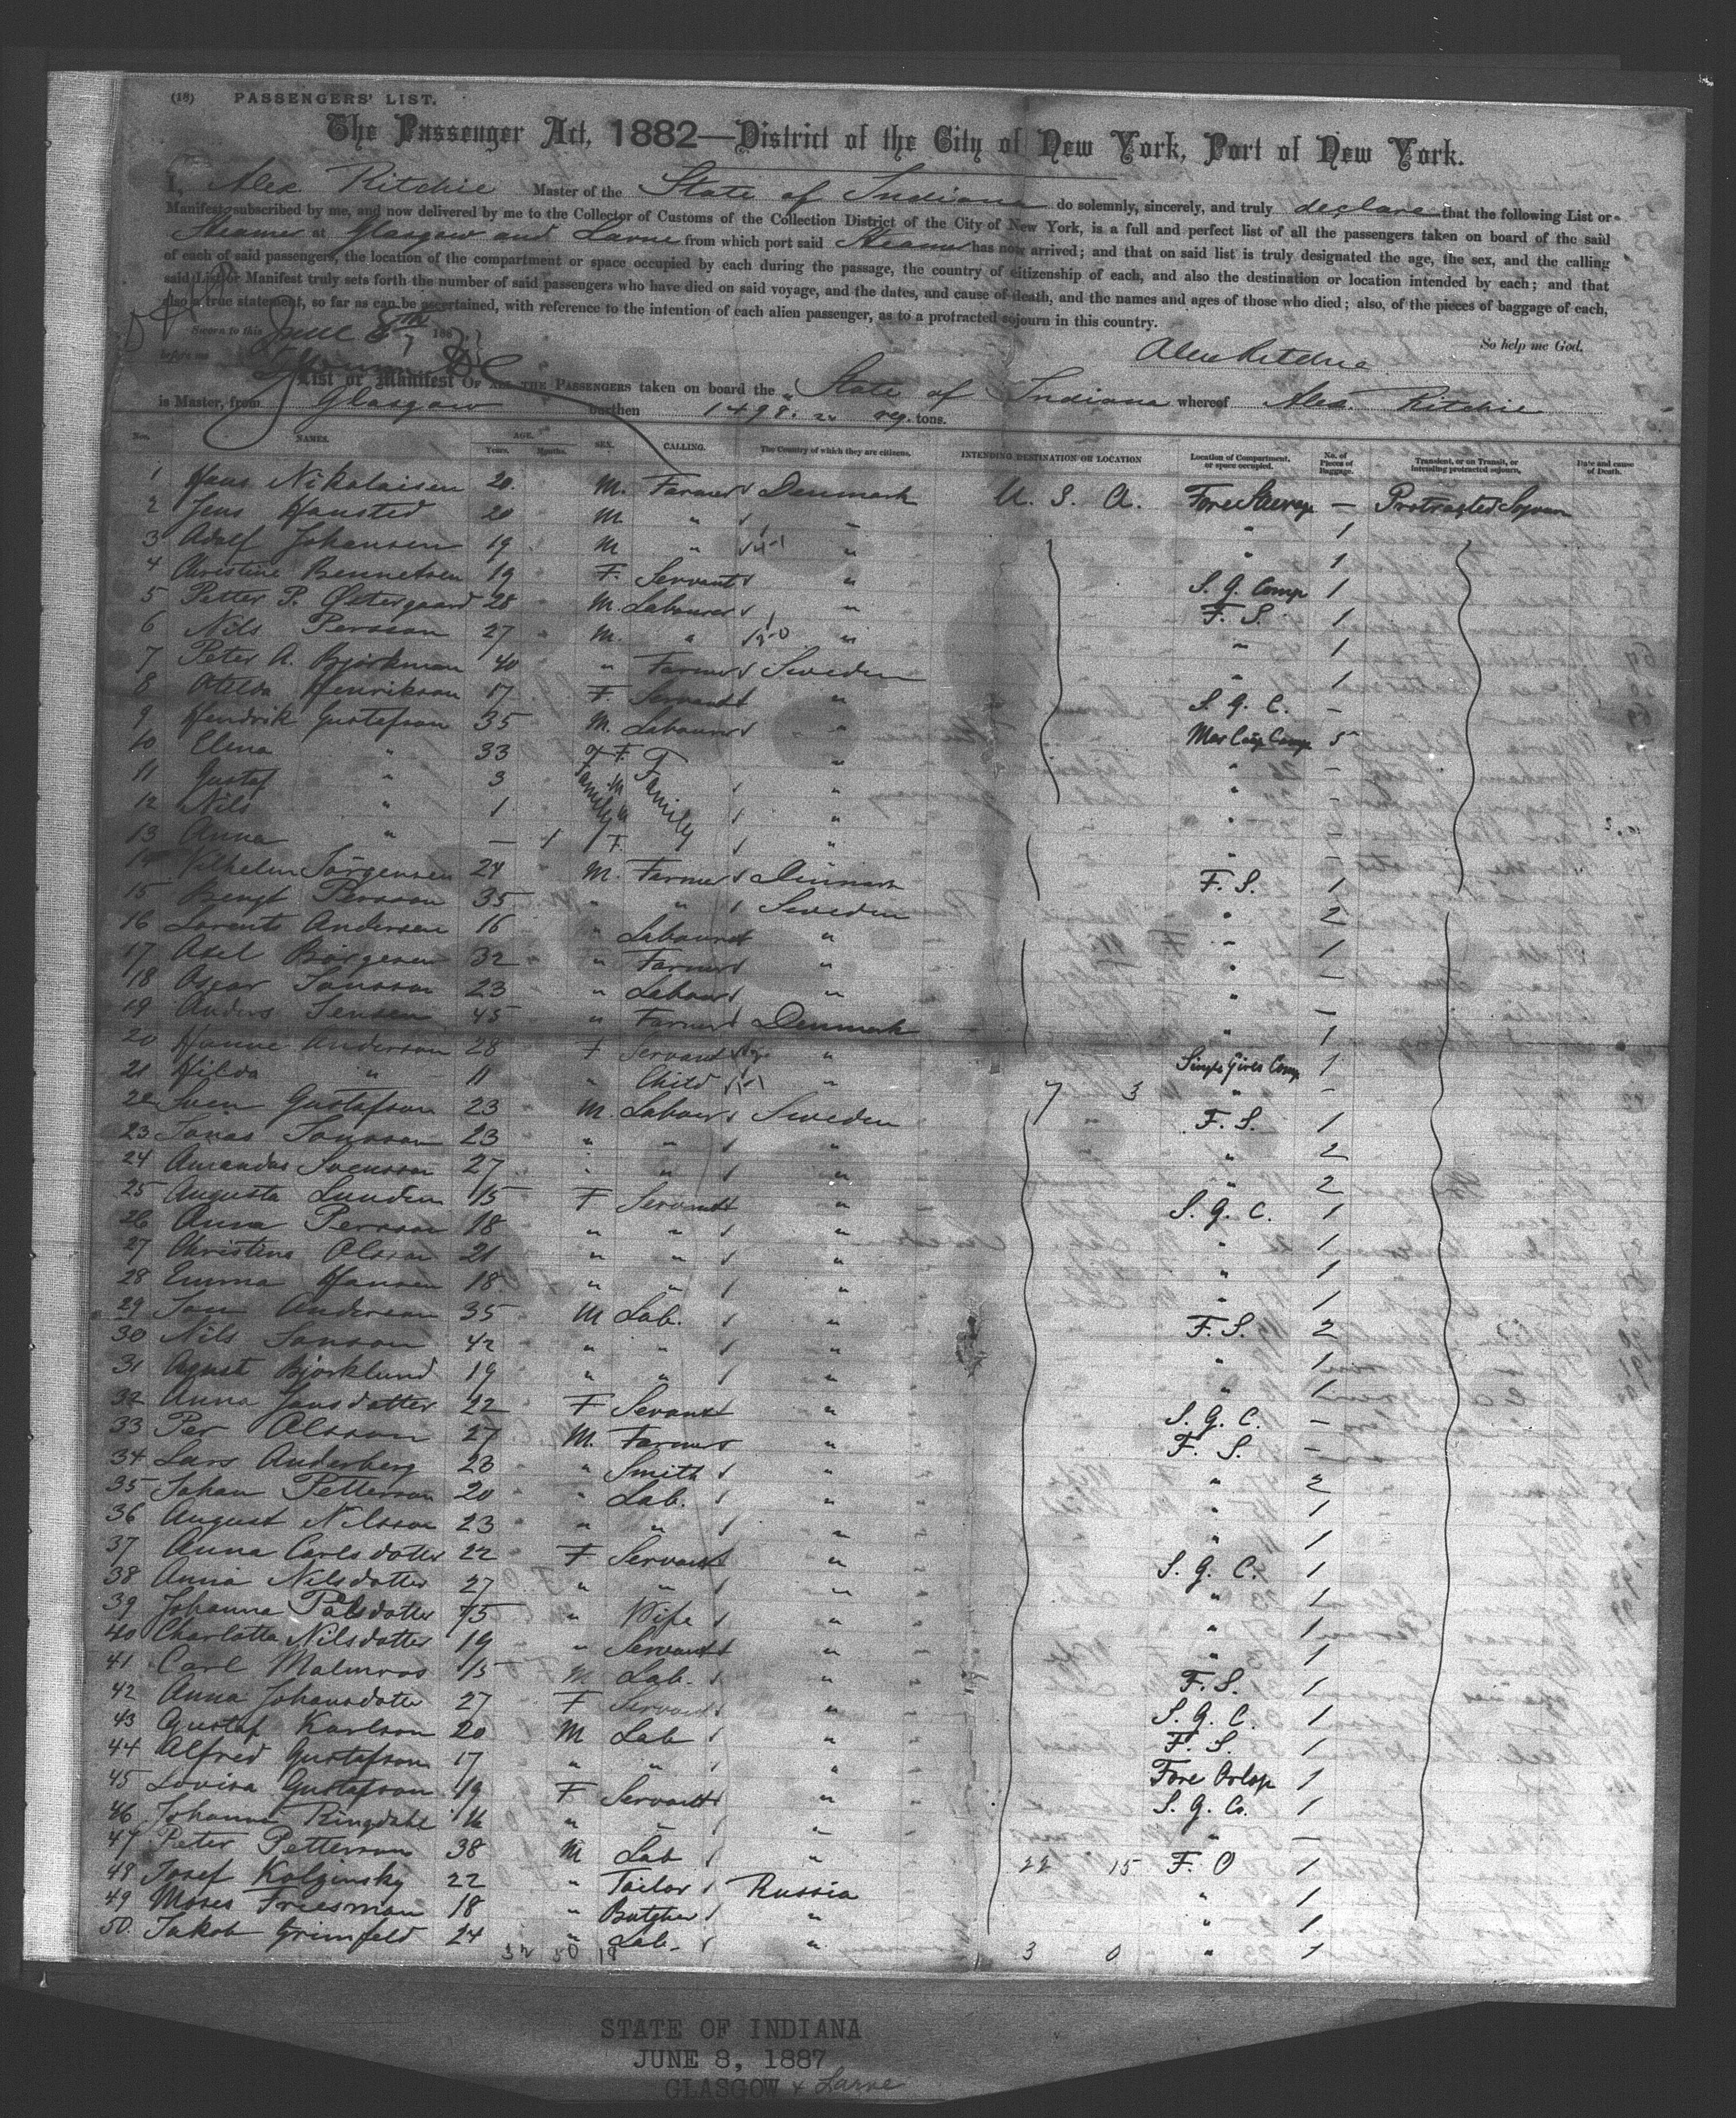 (18) PASSENGERS' LIST.
The Passenger Act, 1882—District of the City of New York, Port of New York.
I, Alex Ritchie Master of the State of Indiana do solemnly, sincerely, and truly declare that the following List or
Manifest subscribed by me, and now delivered by me to the Collector of Customs of the Collection District of the City of New York, is a full and perfect list of all the passengers taken on board of the said
Steamer at Glasgow and Larne from which port said Steamer has now arrived; and that on said list is truly designated the age, the sex, and the calling
of each of said passengers, the location of the compartment or space occupied by each during the passage, the country of citizenship of each, and also the destination or location intended by each; and that
said List or Manifest truly sets forth the number of said passengers who have died on said voyage, and the dates, and cause of death, and the names and ages of those who died; also, of the pieces of baggage of each,
also a true statement, so far as can be ascertained, with reference to the intention of each alien passenger, as to a protracted sojourn in this country.
Sworn to this June 8th 188 So help me God.
before me Alex Ritchie
List or Manifest OF ALL THE PASSENGERS taken on board the State of Indiana whereof Alex. Ritchie
is Master, from Glasgow burthen 1498. reg. tons.
Nos. NAMES. AGE. Years. Months. SEX. CALLING. The Country of which they are citizens. INTENDING DESTINATION OR LOCATION Location of Compartment, or space occupied. No. of Pieces of Baggage. Transient, or on Transit, or intending protracted sojourn. Date and cause of Death.
1 Hans Nikolaisen 20. M. Farmer Denmark U. S. A. Fore Steerage — Protracted Sojourn
2 Jens Hausted 20 M " " " 1
3 Adolf Johansen 19 M " " " 1
4 Christine Bennetsen 19 F. Servant " S. G. Comp 1
5 Petter P. Østergaard 28 M. Labourer " F. S. 1
6 Nils Persson 27 M. " " " 1
7 Peter A. Bjorkman 40 " Farmer Sweden " 1
8 Otelda Henrikson 17 F. Servant " S. G. C. —
9 Hendrik Gustafson 35 M. Labourer " Mar Coup Comp 5
10 Elena " 33 F. Family " " —
11 Gustaf " 3 M " " —
12 Nils " 1 " " " —
13 Anna " — 1 F. " " —
14 Vilhelm Jörgensen 24 M. Farmer Denmark F. S. 1
15 Bengt Persson 35 " " Sweden " 2
16 Lorents Andersen 16 " Labourer " " 1
17 Axel Börgesen 32 " Farmer " " —
18 Oscar Jonsson 23 " Labour " " —
19 Anders Jensen 45 " Farmer Denmark " 1
20 Hanne Anderson 28 F Servant " Single Girls Comp 1
21 Hilda " 11 " Child " 7 3 " —
22 Sven Gustafson 23 M. Labour Sweden F. S. 1
23 Jonas Jonsson 23 " " " " 2
24 Amandus Svensson 27 " " " " 2
25 Augusta Lunden 15 F Servant " S. G. C. 1
26 Anna Persson 18 " " " " 1
27 Christina Olsson 21 " " " " 1
28 Emma Hansen 18 " " " " 1
29 Jon Anderson 35 M Lab. " F. S. 2
30 Nils Jonson 42 " " " " 1
31 Agust Bjorklund 19 " " " " 1
32 Anna Jonsdotter 22 F Sevant " S. G. C. —
33 Per Olsson 27 M. Farmer " F. S. —
34 Lars Anderberg 23 " Smith " " 2
35 Johan Petterson 20 " Lab. " " 1
36 August Nilsson 23 " " " " 1
37 Anna Carlsdotter 22 F Servant " S. G. C. 1
38 Anna Nilsdotter 27 " " " " 1
39 Johanna Palsdotter 75 " Wife " " 1
40 Charlotta Nilsdotter 19 " Servant " " 1
41 Carl Malmros 15 M Lab. " F. S. 1
42 Anna Johansdotter 27 F Servant " S. G. C. 1
43 Gustaf Karlson 20 M Lab " F. S. 1
44 Alfred Gustafson 17 " " " Fore Orlop 1
45 Lovisa Gustafson 19 F Servant " S. G. Co. 1
46 Johanna Ringdahl 16 " " " " —
47 Peter Petterson 38 M Lab " 22 15 F. O 1
48 Josef Kolginsky 22 " Tailor Russia " 1
49 Moses Freesman 18 " Butcher " " 1
50. Jakob Grimfeld 24 " Lab. " 3 0 " 1
32 50 18
STATE OF INDIANA
JUNE 8, 1887
GLASGOW & Larne